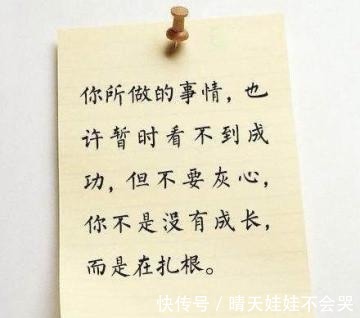 你所做的事情，也
许暂时看不到成
功，但不要灰心，
你不是没有成长，
而是在扎根。
快传号/晴天娃娃不会哭